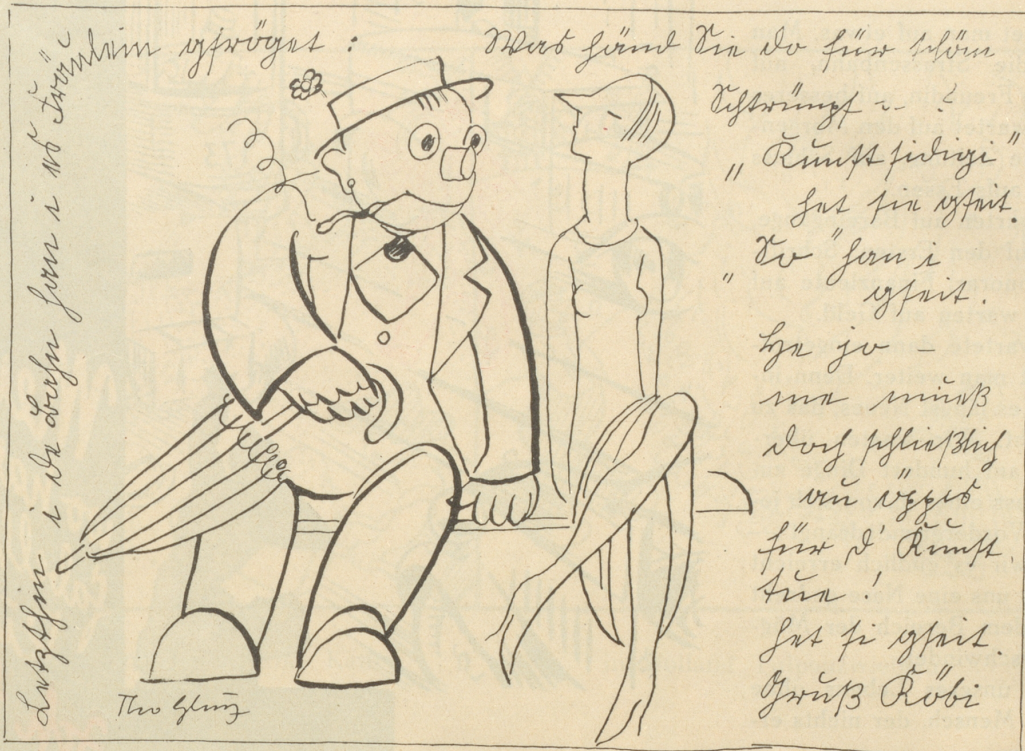 Letzthin i de Bahn han i es Fräulein gfröget :
Was händ Sie do für schöm
Schtrümpf -- ?
„Kunstsidigi"
het sie gseit.
„So" han i
gseit.
He jo –
me mueß
doch schließlich
au öppis
für d' Kunst
tue !
het si gseit.
Gruß Köbi
Theo Glinz